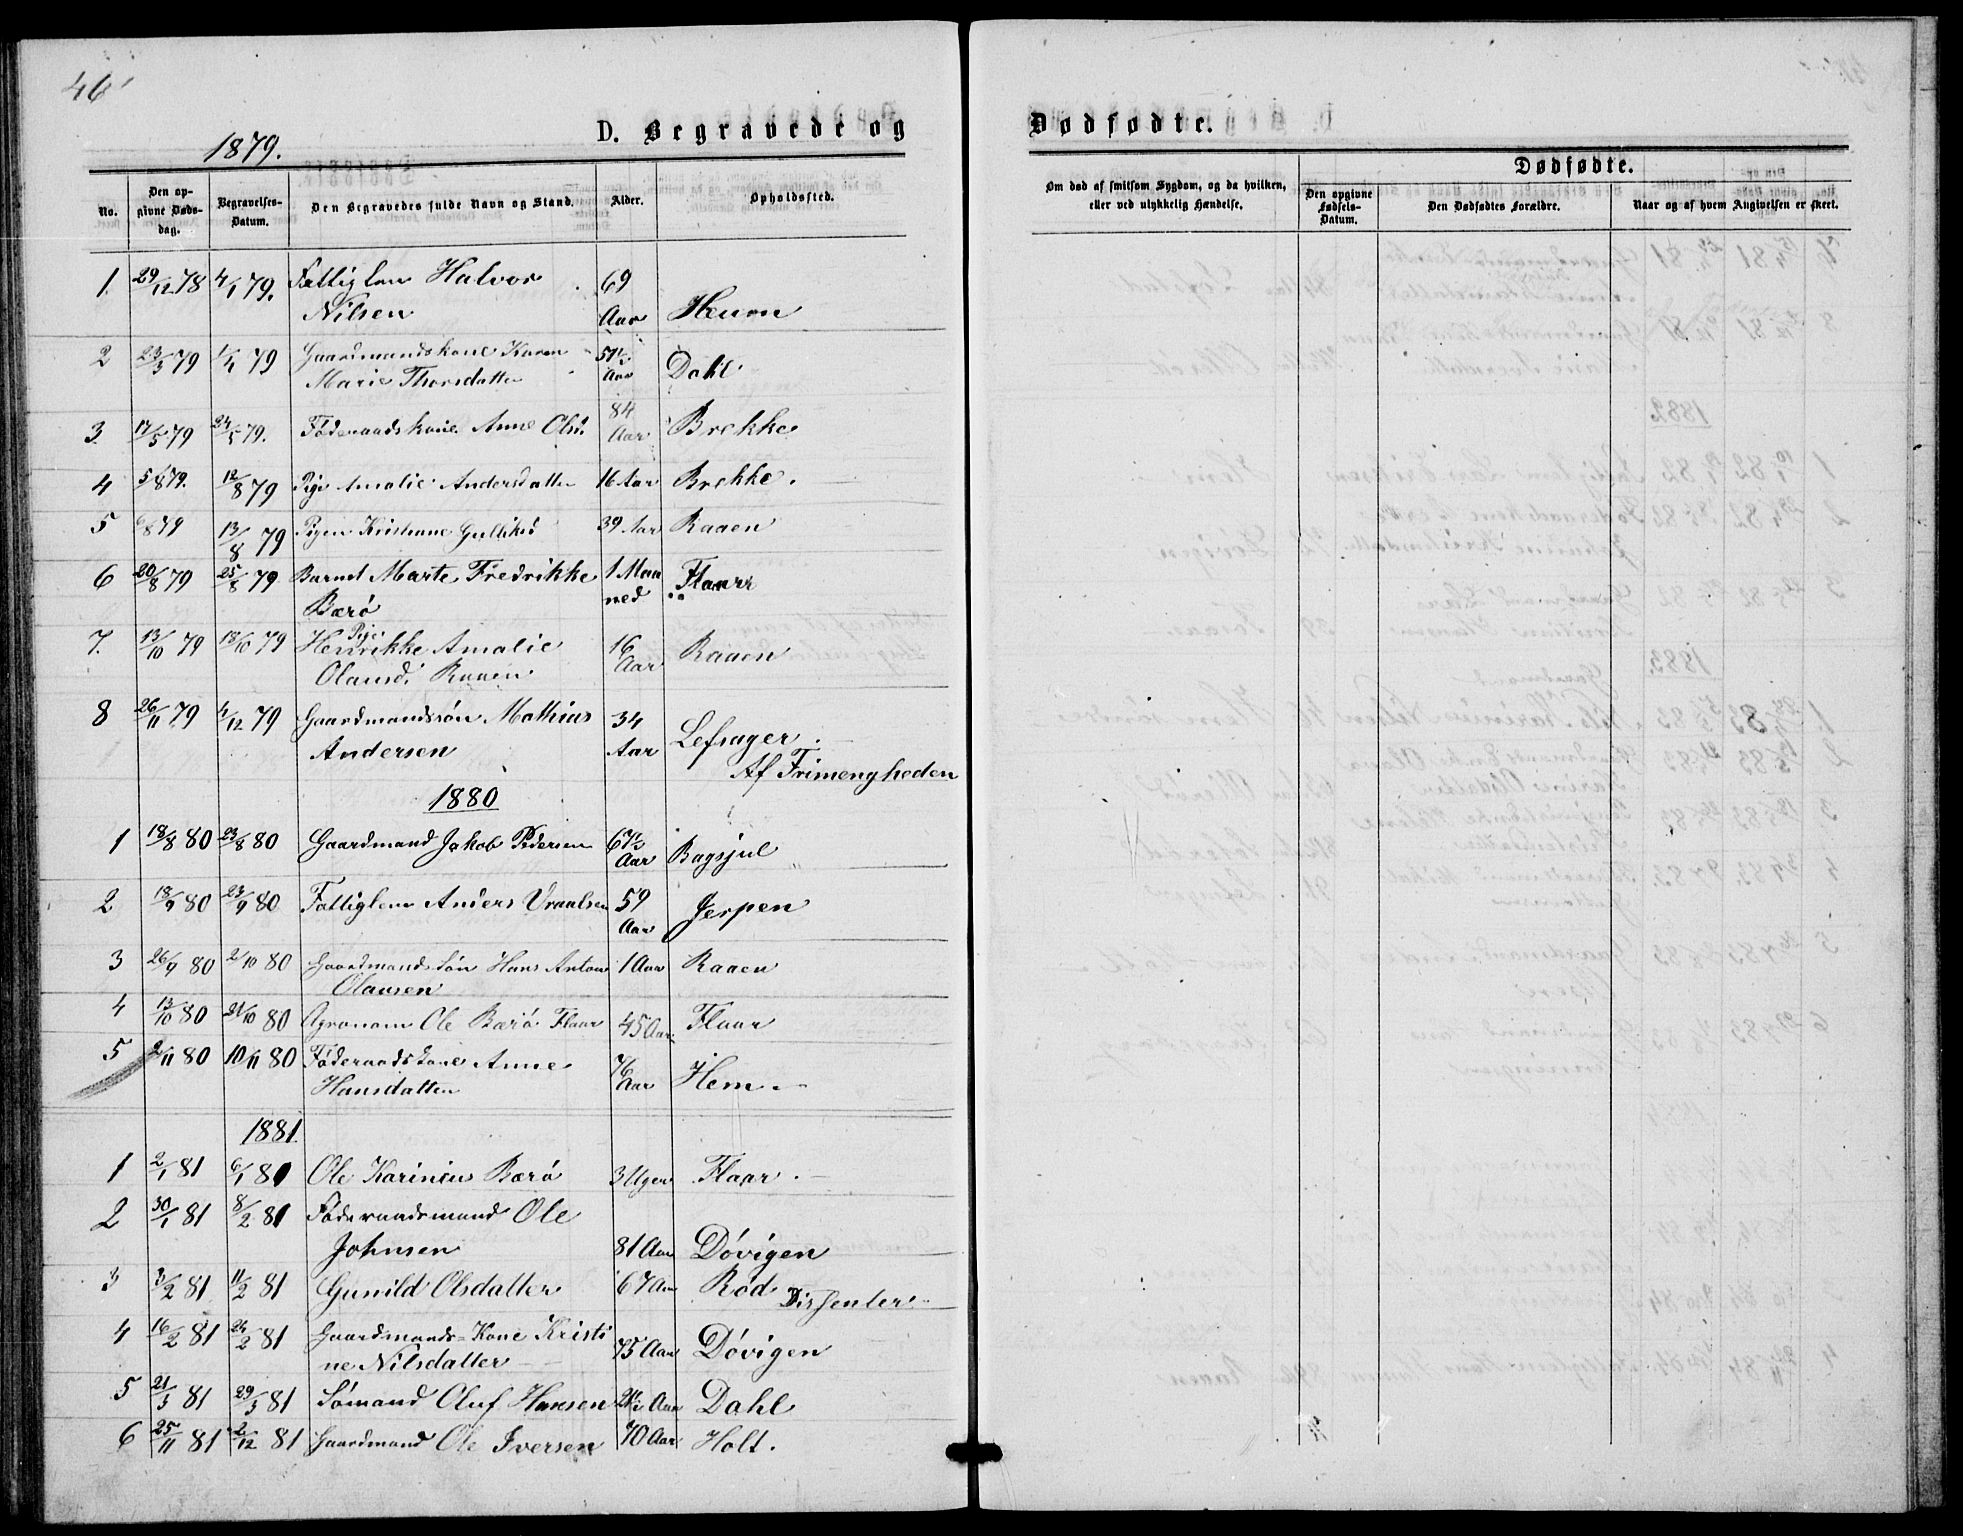 46
1879.
D. Begravede og
Dødfødte.
Dødfødte.
No.
Den op-
givne Døds-
dag.
Begravelses-
Datum.
Den Begravedes fulde Navn og Stand.
Alder.
Opholdssted.
Om død af smitsom Sygdom, og da hvilken,
eller ved ulykkelig Hændelse.
Den opgivne
Fødsels-
Datum.
Den Dødfødtes Forældre.
Naar og af hvem Angivelsen er skeet.
1. 29/12 78 4/1 79. Fattiglem Halvor 69
Nilsen Aar
2 23/3 79 1/4 79 Gaardmandskone Karen 51 1/2
Marie Thorsdatter Aar Dahl
3. 17/5 79 24/5 79. Føderaadskone Anne Olsd. 84 Aar Brekke
4 5/8 79. 12/8 79 Pige Amalie Andersdatter 16 Aar Brekke.
5 6/8 79 13/8 79 Pigen Kristiane Gulliksd 39 Aar Raaen
6 20/8 79 25/8 79 Barnet Marte Fredrikke 1 Maa
Bærø ned Flaar
7. 13/10 79 18/10 79 Pige
Henrikke Amalie 16
Olausd. Raaen Aar Raaen
8 26/11 79 4/12 79 Gaardmandssøn Mathias 34
Andersen Aar Lefsager.
Af Frimenigheden
1880
1 18/8 80 23/8 80 Gaardmand Jakob Pedersen 67 1/2 Aar
2 18/9 80 23/9 80 Fattiglem Anders Vraalsen 59
Aar Jerpen
3 26/9 80 2/10 80 Gaardmands Søn Hans Anton 1 Aar Raaen
Olausen
4 13/10 80 21/10 80 Agronom Ole Bærø Flaar 45 Aar. Flaar
5 2/11 80 10/11 80 Føderaadskone Anne 76
Hansdatter Aar Hem.
1881.
1 2/1 81 6/1 81 Ole Karinius Bærø 3 Uger Flaar.
2 30/1 81 8/2 81 Føderaadsmand Ole
Johnsen 81 Aar Døvigen
3 3/2 81 11/2 81 Gunild Olsdatter 67 Aar Rød
Dissenter
4 16/2 81 24/2 81 Gaardmands-Kone Kristi
ne Nilsdatter 75 Aar Døvigen
5 21/3 81 29/3 81 Sømand Oluf Hansen Aar Dahl
6 25/11 81 2/12 81 Gaardmand Ole Iversen 70 Aar Holt.